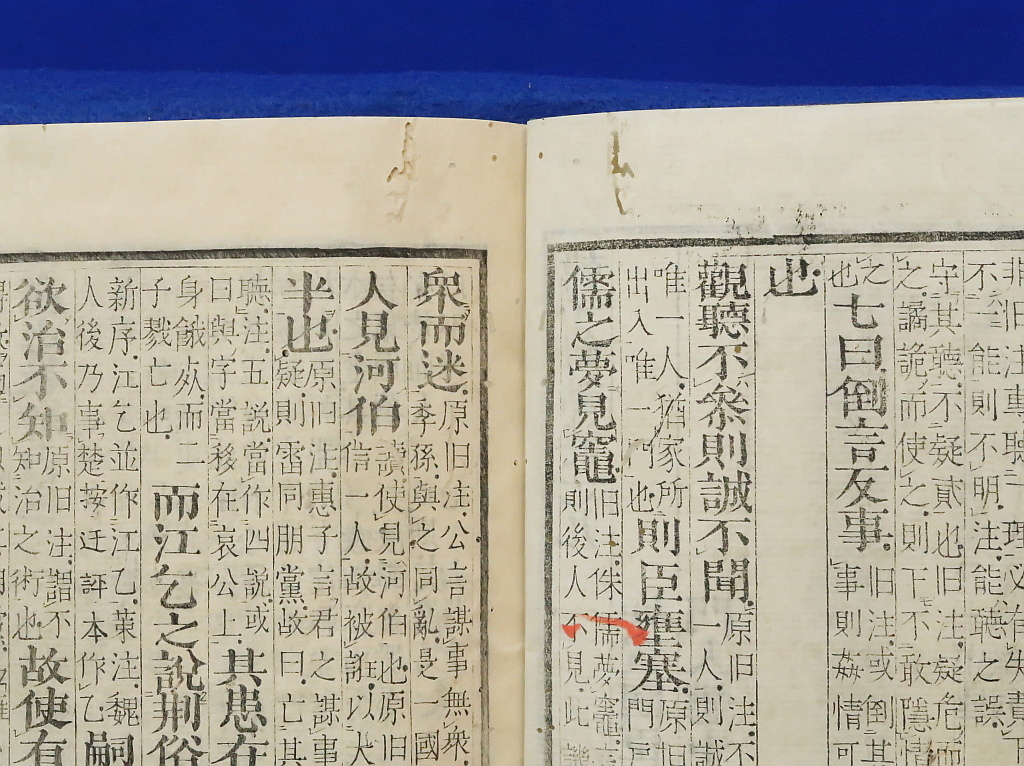 非旧注專聽一理必有失責下
不一能則不明注能聽之誤
守其聽不疑貳也旧注疑危而
之譎詭而使之則下不敢隱情
之
也
七曰倒言反事
旧注或倒其
事則姦情可
也
觀聽不參則誠不聞
原旧注不
一人則誠
唯一人猶家所
出入唯一門也
則臣壅塞
原旧
門戶
儒之夢見竈
旧注侏儒夢竈言
則後人不見此譏
衆而迷
原旧注公言謀事無衆
季孫與之同亂是一國
人見河伯
讀使見河伯也原旧
信一人故被誑以大
半也
原旧注惠子言君之謀事
疑則雷同朋黨故曰亡其
聽注五說當作四說或
曰與字當移在哀公上
其患在
身餓死而二
子戮亡也
而江乞之說荊俗
新序江乞並作江乙藁注魏
人後乃事楚按迂評本作乙
嗣
欲治不知
原旧注謂不
知治之術也
故使有